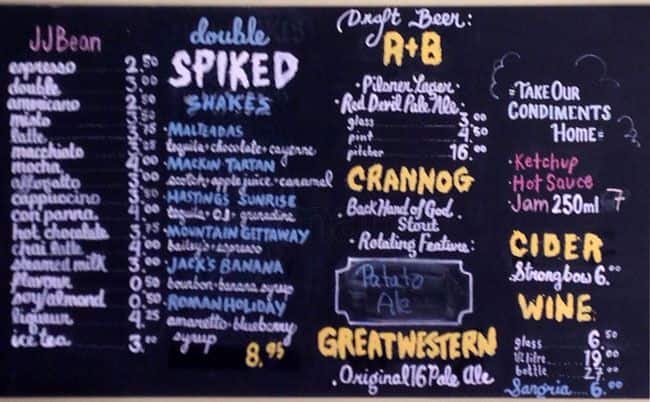 JJBean
espresso 2.50
double 3.00
americano 2.50
misto
latte 3.75
macchiato
mocha 4.00
affogatto
cappuccino 3.50
con panna 4.00
hot chocolate 3.75
chai latte 4.00
steamed milk 3.00
flavour 0.50
soy/almond 0.50
liqueur 4.25
ice tea 3.00
double
SPIKED
SHAKES
·MALTEADAS
tequila·chocolate·cayenne
·MACKIN TARTAN
scotch·apple juice·caramel
·HASTINGS SUNRISE
tequila·O.J.·grenadine
·MOUNTAIN GETTAWAY
bailey's·espresso
·JACK'S BANANA
bourbon·banana syrup
·ROMAN HOLIDAY
amaretto·blueberry
syrup
8.95
Draft Beer:
R+B
·Pilsner Lager·
·Red Devil Pale Ale·
glass 3.00
pint 4.50
pitcher 16.00
CRANNOG
·Back Hand of God
Stout
·Rotating Feature:
Potato
Ale
GREATWESTERN
·Original 16 Pale Ale
=TAKE OUR
CONDIMENTS
HOME=
·Ketchup
·Hot Sauce
·Jam 250ml 7
CIDER
Strongbow 6.00
WINE
glass 6.50
1/2 litre 19.00
bottle 27.00
Sangria 6.00